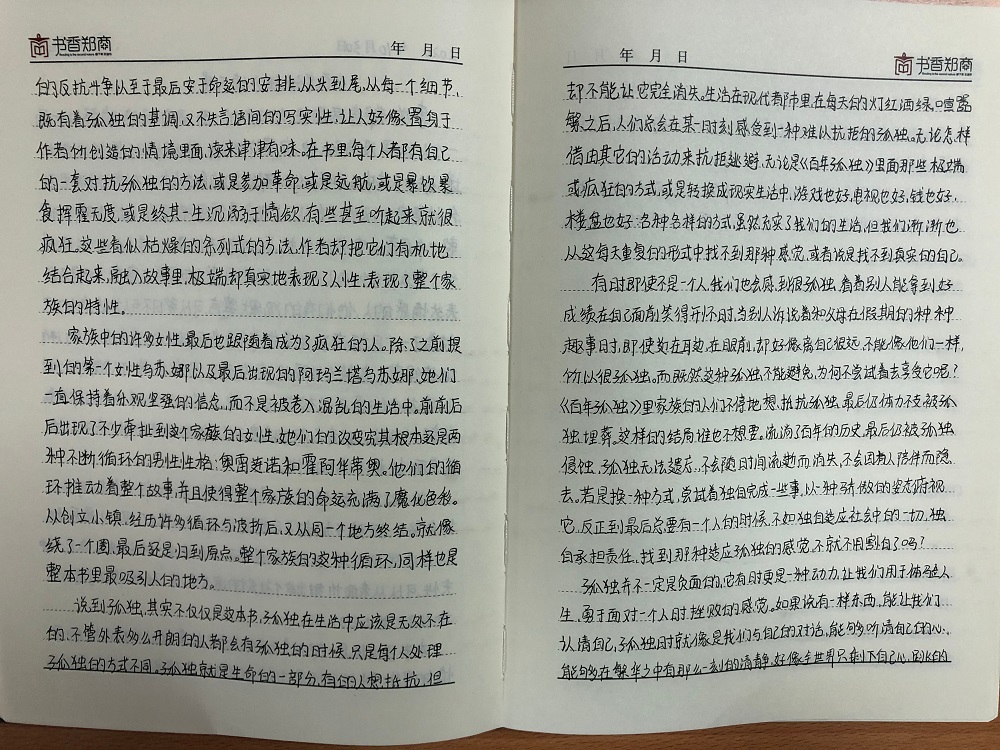 书香郑商
年 月 日
的反抗斗争从至于最后安于命运的安排,从头到尾,从每一个细节,
既有着孤独的基调,又不失言语间的写实性,让人好像置身于
作者所创造的情境里面,读来津津有味。在书里,每个人都有自己
的一套对抗孤独的方法,或是参加革命,或是远航,或是暴饮暴
食挥霍无度,或是终其一生沉溺于情欲,有些甚至听起来就很
疯狂。这些看似枯燥的条列式的方法,作者却把它们有机地
结合起来,融入故事里,极端却真实地表现了人性,表现了整个家
族的特性。
家族中的许多女性,最后也跟随着成为了疯狂的人。除了之前提
到的第一个女性乌苏娜以及最后出现的阿玛兰塔乌苏娜,她们
一直保持着乐观坚强的信念,而不是被卷入混乱的生活中。前前后
后出现了不少牵扯到这个家族的女性,她们的改变究其根本还是两
种不断循环的男性性格:奥雷连诺和霍阿华蒂奥。他们的循
环推动着整个故事,并且使得整个家族的命运充满了魔化色彩。
从创立小镇,经历许多循环与波折后,又从同一个地方终结。就像
绕了一个圈,最后还是归到原点。整个家族的这种循环,同样也是
整本书里最吸引人的地方。
说到孤独,其实不仅仅是这本书,孤独在生活中应该是无处不在
的,不管外表多么开朗的人都会有孤独的时候,只是每个人处理
孤独的方式不同,孤独就是生命的一部分,有的人想抵抗,但
年 月 日
书香郑商
却不能让它完全消失。生活在现代都市里,在每天的灯红酒绿,喧嚣
繁之后,人们总会在某一时刻感受到一种难以抗拒的孤独。无论怎样
借由其它的活动来抗拒逃避,无论是《百年孤独》里面那些极端
或疯狂的方式,或是转换成现实生活中,游戏也好,电视也好,钱也好,
楼盘也好:各种各样的方式,虽然充实了我们的生活,但我们渐渐也
从这每天重复的形式中找不到那种感觉,或者说是找不到真实的自己。
有时即使不是一个人,我们也会感到很孤独,看着别人能拿到好
成绩在自己面前笑得开怀时,当别人诉说着和父母在假期的种种
趣事时,即使类在耳边,在眼前,却好像离自己很远,不能像他们一样,
所以很孤独。而既然这种孤独不能避免,为何不尝试着去享受它呢?
《百年孤独》里家族的人们不停地想,抵抗孤独,最后仍体力不支被孤
独埋葬,这样的结局谁也不想要。流淌了百年的历史,最后仍被孤独
侵蚀,孤独无法遗忘,不会随时间流逝而消失,不会因有人陪伴而隐
去。若是换一种方式,尝试着独自完成一些事,以一种骄傲的姿态俯视
它,反正到最后总要有一个人的时候,不如独自适应社会中的一切,独
自承担责任,找到那种适应孤独的感觉,不就不用割舍了吗?
孤独并不一定是负面的,它有时更是一种动力,让我们用于体验人
生,勇于面对一个人时挫败的感觉。如果说有一样东西,能让我们
认清自己,孤独时就像是我们与自己的对话,能够听清自己的心,
能够在繁华之中有那么一刻的清静,好像全世界只剩下自己心,别的